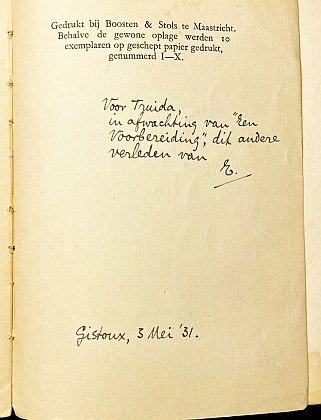 Gedrukt bij Boosten & Stols te Maastricht.
Behalve de gewone oplage werden 10
exemplaren op geschept papier gedrukt,
genummerd I—X.
Voor Truida,
in afwachting van "Een
Voorbereiding", dit andere
verleden van
E.
Gistoux, 3 Mei '31.